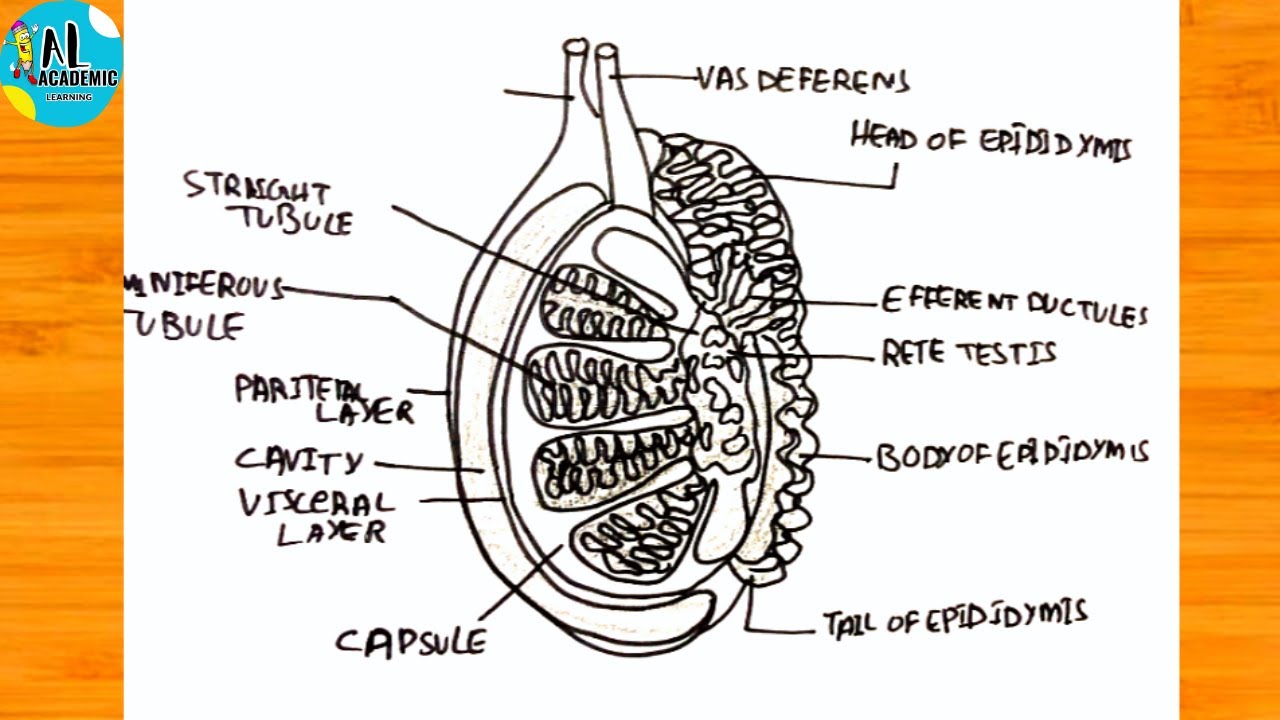 AL
ACADEMIC
LEARNING
VAS DEFERENS
HEAD OF EPIDIDYMIS
STRAIGHT
TUBULE
MINIFEROUS
TUBULE
EFFERENT DUCTULES
RETE TESTIS
PARITETAL
LAYER
CAVITY
BODY OF EPIDIDYMIS
VISCERAL
LAYER
CAPSULE
TAIL OF EPIDIDYMIS